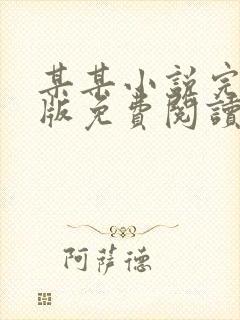 某某小说完
版免費閱讀
阿萨德